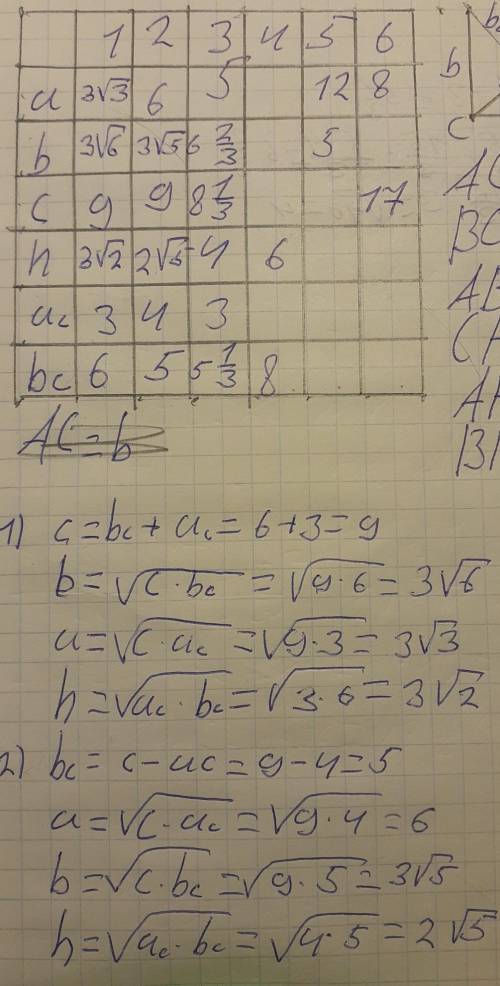 1 2 3 4 5 6
a 3√3 6 5 12 8
b 3√6 3√5 6 2/3 5
c 9 9 8 1/3 17
h 3√2 2√5 4 6
ac 3 4 3
bc 6 5 5 1/3 8
AC = b
b
C
1) c = bc + ac = 6 + 3 = 9
b = √c · bc = √9 · 6 = 3√6
a = √c · ac = √9 · 3 = 3√3
h = √ac · bc = √3 · 6 = 3√2
2) bc = c - ac = 9 - 4 = 5
a = √c · ac = √9 · 4 = 6
b = √c · bc = √9 · 5 = 3√5
h = √ac · bc = √4 · 5 = 2√5